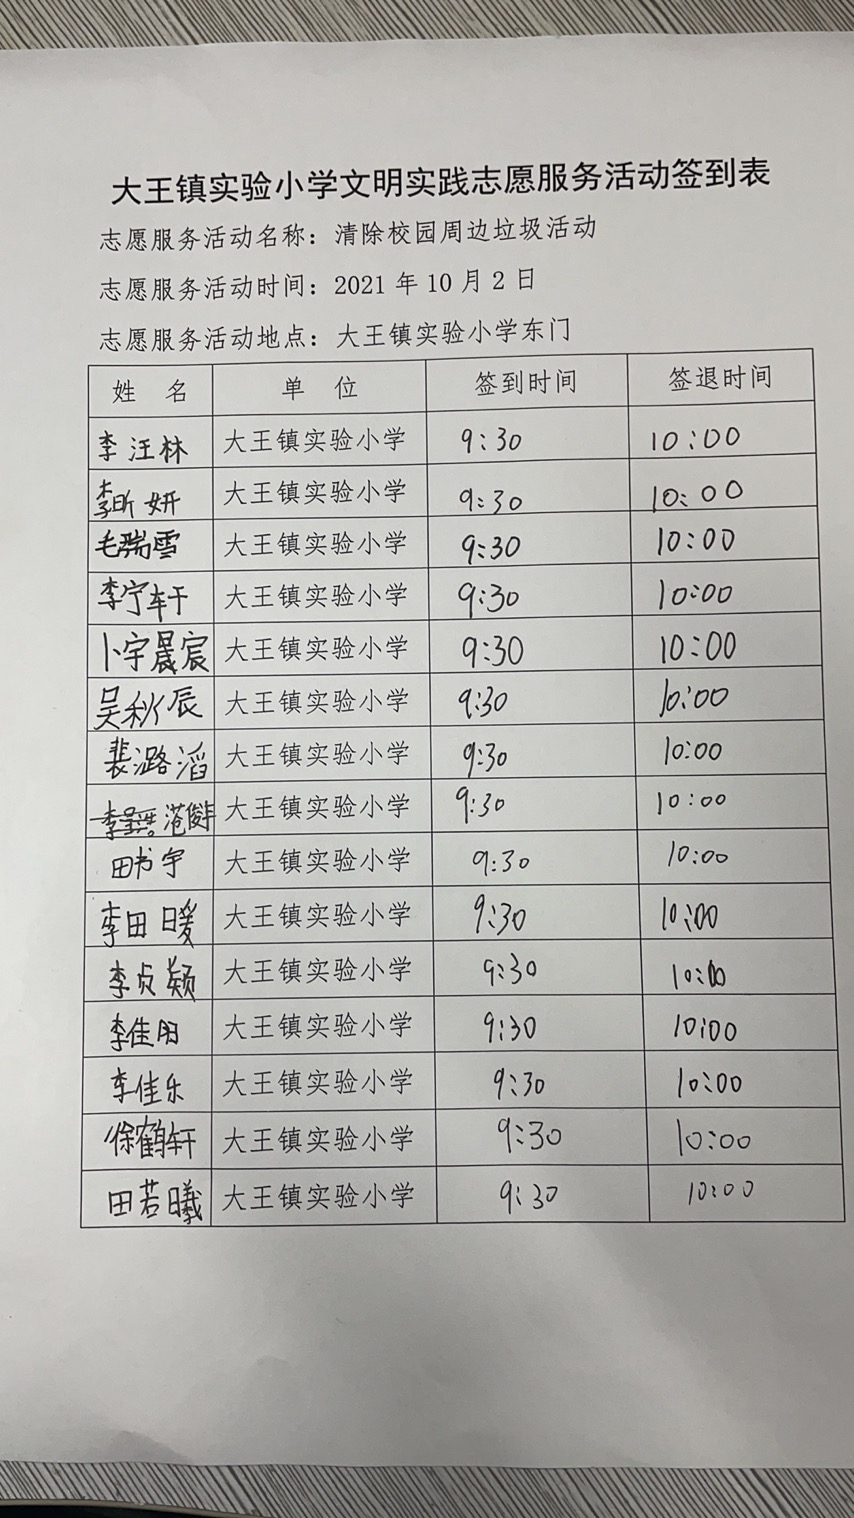 大王镇实验小学文明实践志愿服务活动签到表
志愿服务活动名称：清除校园周边垃圾活动
志愿服务活动时间：2021年10月2日
志愿服务活动地点：大王镇实验小学东门
姓 名 单 位 签到时间 签退时间
李汪林 大王镇实验小学 9:30 10:00
李昕妍 大王镇实验小学 9:30 10:00
毛瑞雪 大王镇实验小学 9:30 10:00
李宁轩 大王镇实验小学 9:30 10:00
卜宇晨宸 大王镇实验小学 9:30 10:00
吴秋辰 大王镇实验小学 9:30 10:00
裴潞滔 大王镇实验小学 9:30 10:00
范俊 大王镇实验小学 9:30 10:00
田书宇 大王镇实验小学 9:30 10:00
李田暖 大王镇实验小学 9:30 10:00
李贞颖 大王镇实验小学 9:30 10:00
李佳 大王镇实验小学 9:30 10:00
李佳乐 大王镇实验小学 9:30 10:00
徐鹤轩 大王镇实验小学 9:30 10:00
田若曦 大王镇实验小学 9:30 10:00